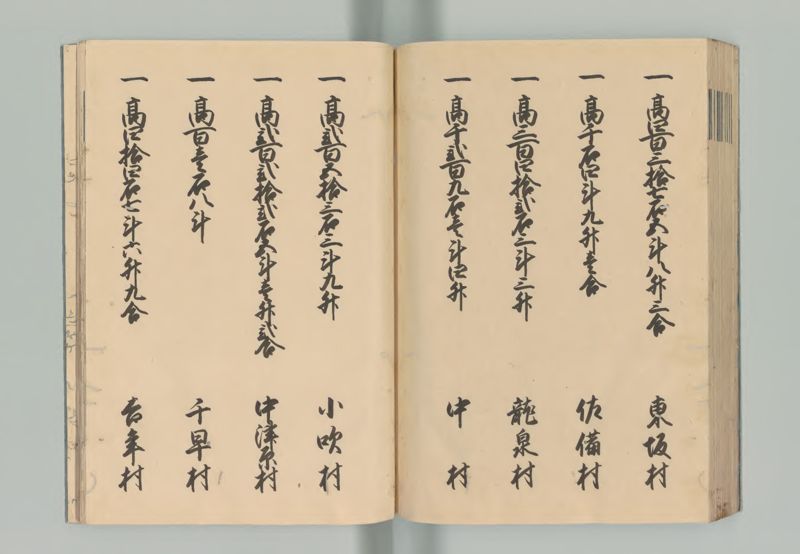 一高四百三拾七石五斗八升三合 東坂村
一高千石四斗九升壱合 佐備村
一高三百四拾弐石三斗三升 龍泉村
一高千弐百九石壱斗四升 中村
一高弐百五拾三石三斗九升 小吹村
一高弐百弐拾弐石五斗壱升弐合 中津原村
一高百壱石八斗 千早村
一高四拾四石七斗六升九合 吉年村